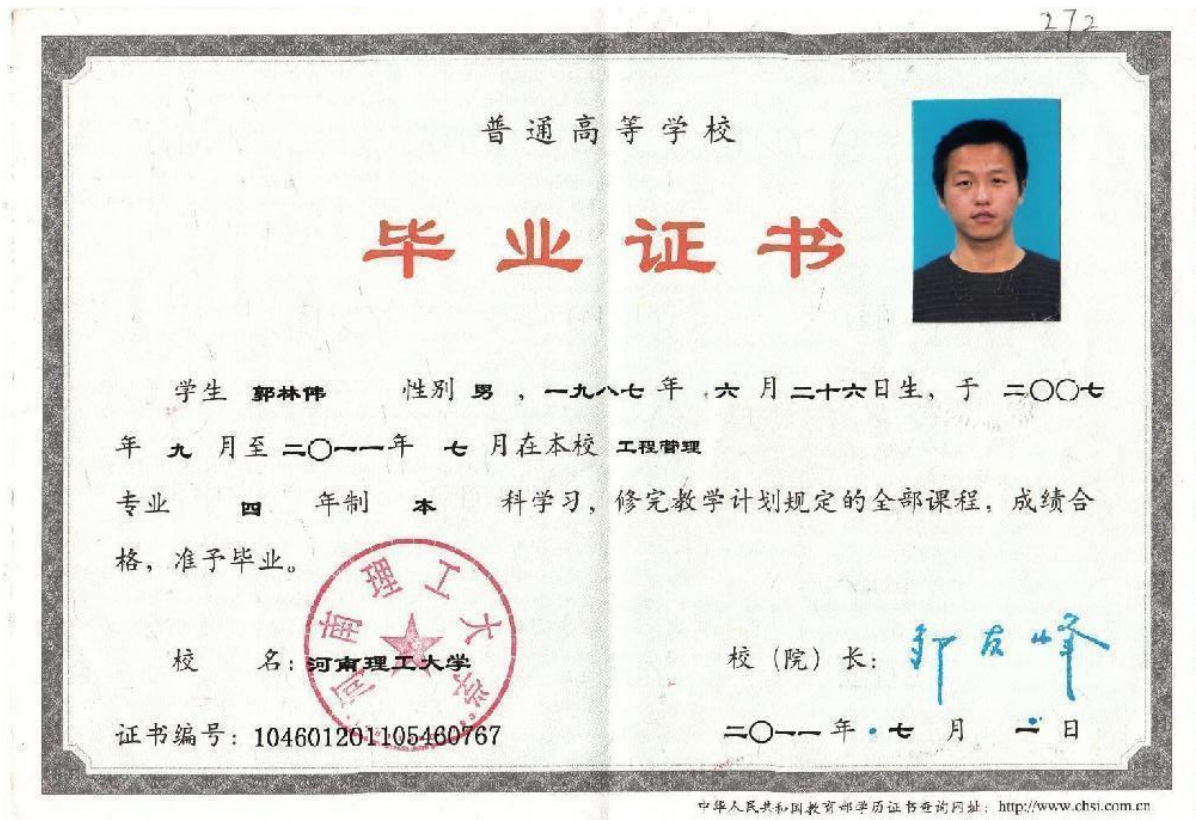 272
普通高等学校
毕业证书
学生 郭林伟 性别 男 , 一九八七 年 六 月 二十六日生, 于 二〇〇七
年 九 月至 二〇一一年 七 月在本校 工程管理
专业 四 年制 本 科学习, 修完教学计划规定的全部课程, 成绩合
格, 准予毕业。
河南理工大学
校 名: 河南理工大学 校 (院) 长: 邹友峰
证书编号: 104601201105460767 二〇一一 年 七 月 日
中华人民共和国教育部学历证书查询网址: http://www.chsi.com.cn